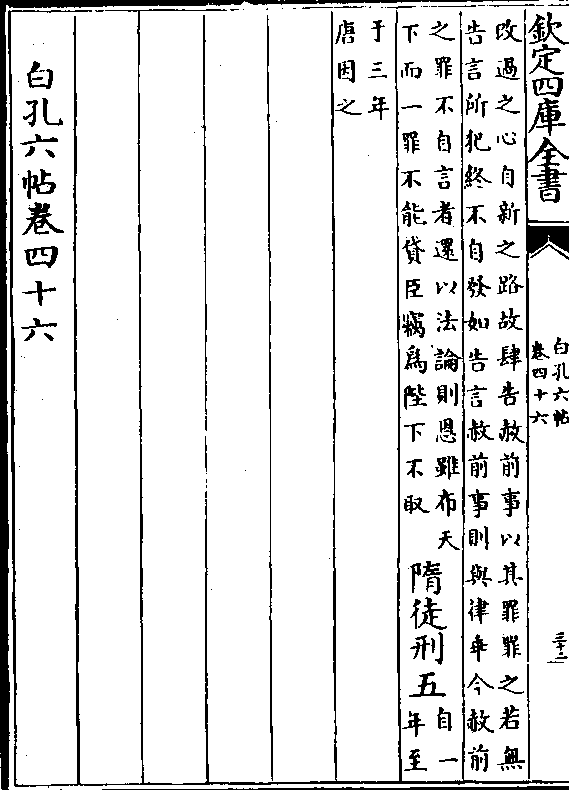 欽定四庫全書
白孔六帖
卷四十六
三十二
改過之心自新之路故肆告赦前事以其罪罪之若無
告言所犯終不自發如告言赦前事則與律乖今赦前
之罪不自言者還以法論則恩雖布天
下而一罪不能貸臣竊爲陛下不取
隋徒刑五
自一
年至
于三年
唐因之
白孔六帖卷四十六